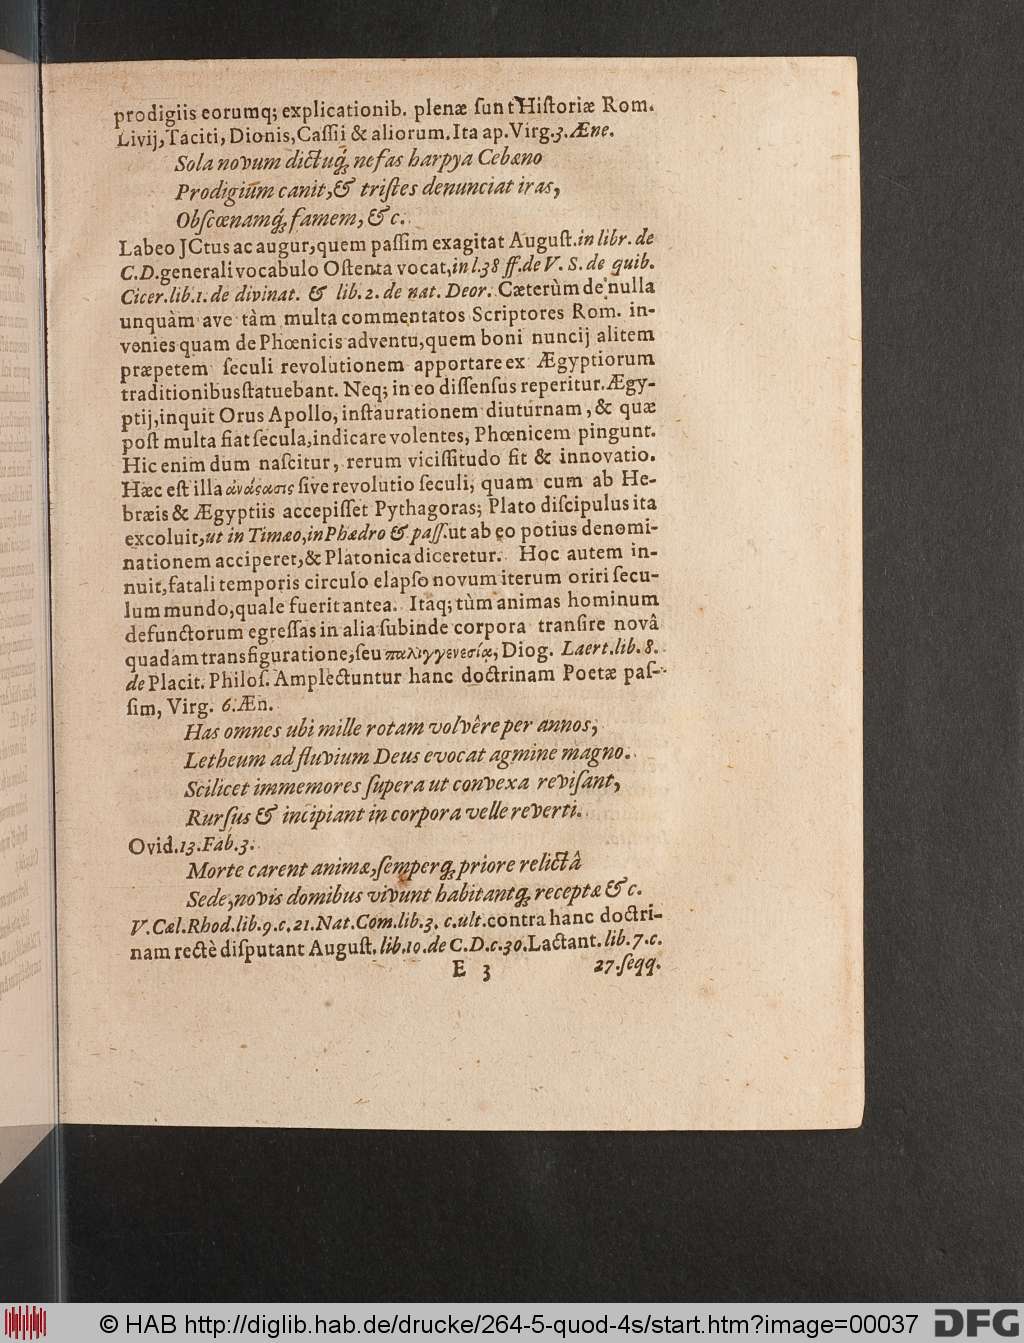 prodigiis eorumq; explicationib. plenæ ſunt Hiſtoriæ Rom.
Livij, Taciti, Dionis, Caſſii & aliorum. Ita ap. Virg. 3. Æne.
Sola novum dictuq́; nefas harpya Cebæno
Prodigium canit, & triſtes denunciat iras,
Obſcœnamq́; famem, & c.
Labeo JCtus ac augur, quem paſſim exagitat Auguſt. in libr. de
C.D. generali vocabulo Oſtenta vocat, in l. 38 ff. de V. S. de quib.
Cicer. lib. 1. de divinat. & lib. 2. de nat. Deor. Cæterùm de nulla
unquàm ave tàm multa commentatos Scriptores Rom. in-
venies quam de Phœnicis adventu, quem boni nuncij alitem
præpetem ſeculi revolutionem apportare ex Ægyptiorum
traditionibus ſtatuebant. Neq; in eo diſſenſus reperitur. Ægy-
ptij, inquit Orus Apollo, inſtaurationem diuturnam, & quæ
poſt multa fiat ſecula, indicare volentes, Phœnicem pingunt.
Hic enim dum naſcitur, rerum viciſſitudo fit & innovatio.
Hæc eſt illa ἀνάϛασις ſive revolutio ſeculi, quam cum ab He-
bræis & Ægyptiis accepiſſet Pythagoras; Plato diſcipulus ita
excoluit, ut in Timæo, in Phædro & paſſ. ut ab eo potius denomi-
nationem acciperet, & Platonica diceretur. Hoc autem in-
nuit, fatali temporis circulo elapſo novum iterum oriri ſecu-
lum mundo, quale fuerit antea. Itaq; tùm animas hominum
defunctorum egreſſas in alia ſubinde corpora tranſire novâ
quadam transfiguratione, ſeu παλιγγενεσίᾳ, Diog. Laert. lib. 8.
de Placit. Philoſ. Amplectuntur hanc doctrinam Poetæ paſ-
ſim, Virg. 6. Æn.
Has omnes ubi mille rotam volvêre per annos,
Letheum ad fluvium Deus evocat agmine magno.
Scilicet immemores ſupera ut convexa reviſant,
Rurſus & incipiant in corpora velle reverti.
Ovid. 13. Fab. 3.
Morte carent animæ, ſemperq́; priore relictâ
Sede, novis domibus vivunt habitantq́; receptæ & c.
V. Cæl. Rhod. lib. 9. c. 21. Nat. Com. lib. 3. c. ult. contra hanc doctri-
nam rectè diſputant Auguſt. lib. 10. de C. D. c. 30. Lactant. lib. 7. c.
E 3 27. ſeqq.
© HAB http://diglib.hab.de/drucke/264-5-quod-4s/start.htm?image=00037
DFG